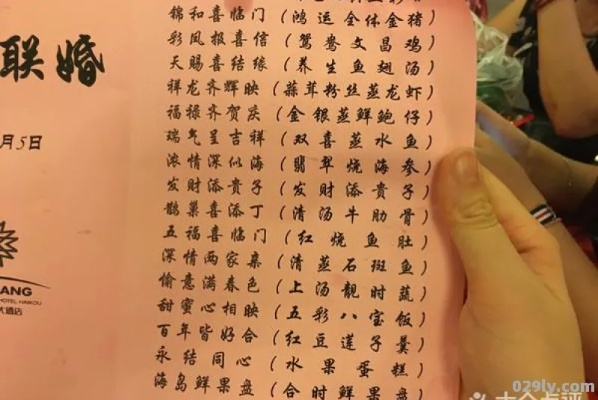 锦和喜临门（鸿运全体金猪）
彩凤报喜信（鸳鸯文昌鸡）
天赐喜结缘（养生鱼翅汤）
祥龙齐辉映（蒜茸粉丝蒸龙虾）
福禄齐贺庆（金银蒸鲜鲍仔）
瑞气呈吉祥（双喜蒸水鱼）
浓情深似海（翡翠烧海参）
发财添贵子（发财添贵子）
鹊巢喜添丁（清汤牛肋骨）
五福喜临门（红烧鱼肚）
深情两家亲（清蒸石斑鱼）
偷意满春色（上汤靓时蔬）
甜蜜心相映（五彩八宝饭）
百年皆好合（红豆莲子羹）
永结同心（水果蛋糕）
海岛鲜果盘（合时鲜果盘）
联婚
月5日
ANG
HOTEL HAIKOU
大酒店
029ly.com